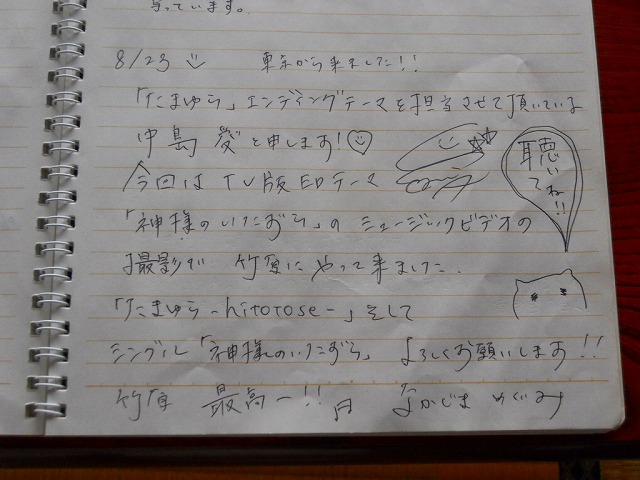 っています。
8/23 東京から来ました!!
「たまゆら」エンディングテーマを担当させて頂いている
中島 愛と申します!
今回は TV版EDテーマ
聴いてね!!
「神様のいたずら」の ミュージックビデオの
撮影で 竹原にやって来ました.
「たまゆら-hitotose-」そして
シングル「神様のいたずら」 よろしくお願いします!!
竹原 最高ー!! なかじま めぐみ